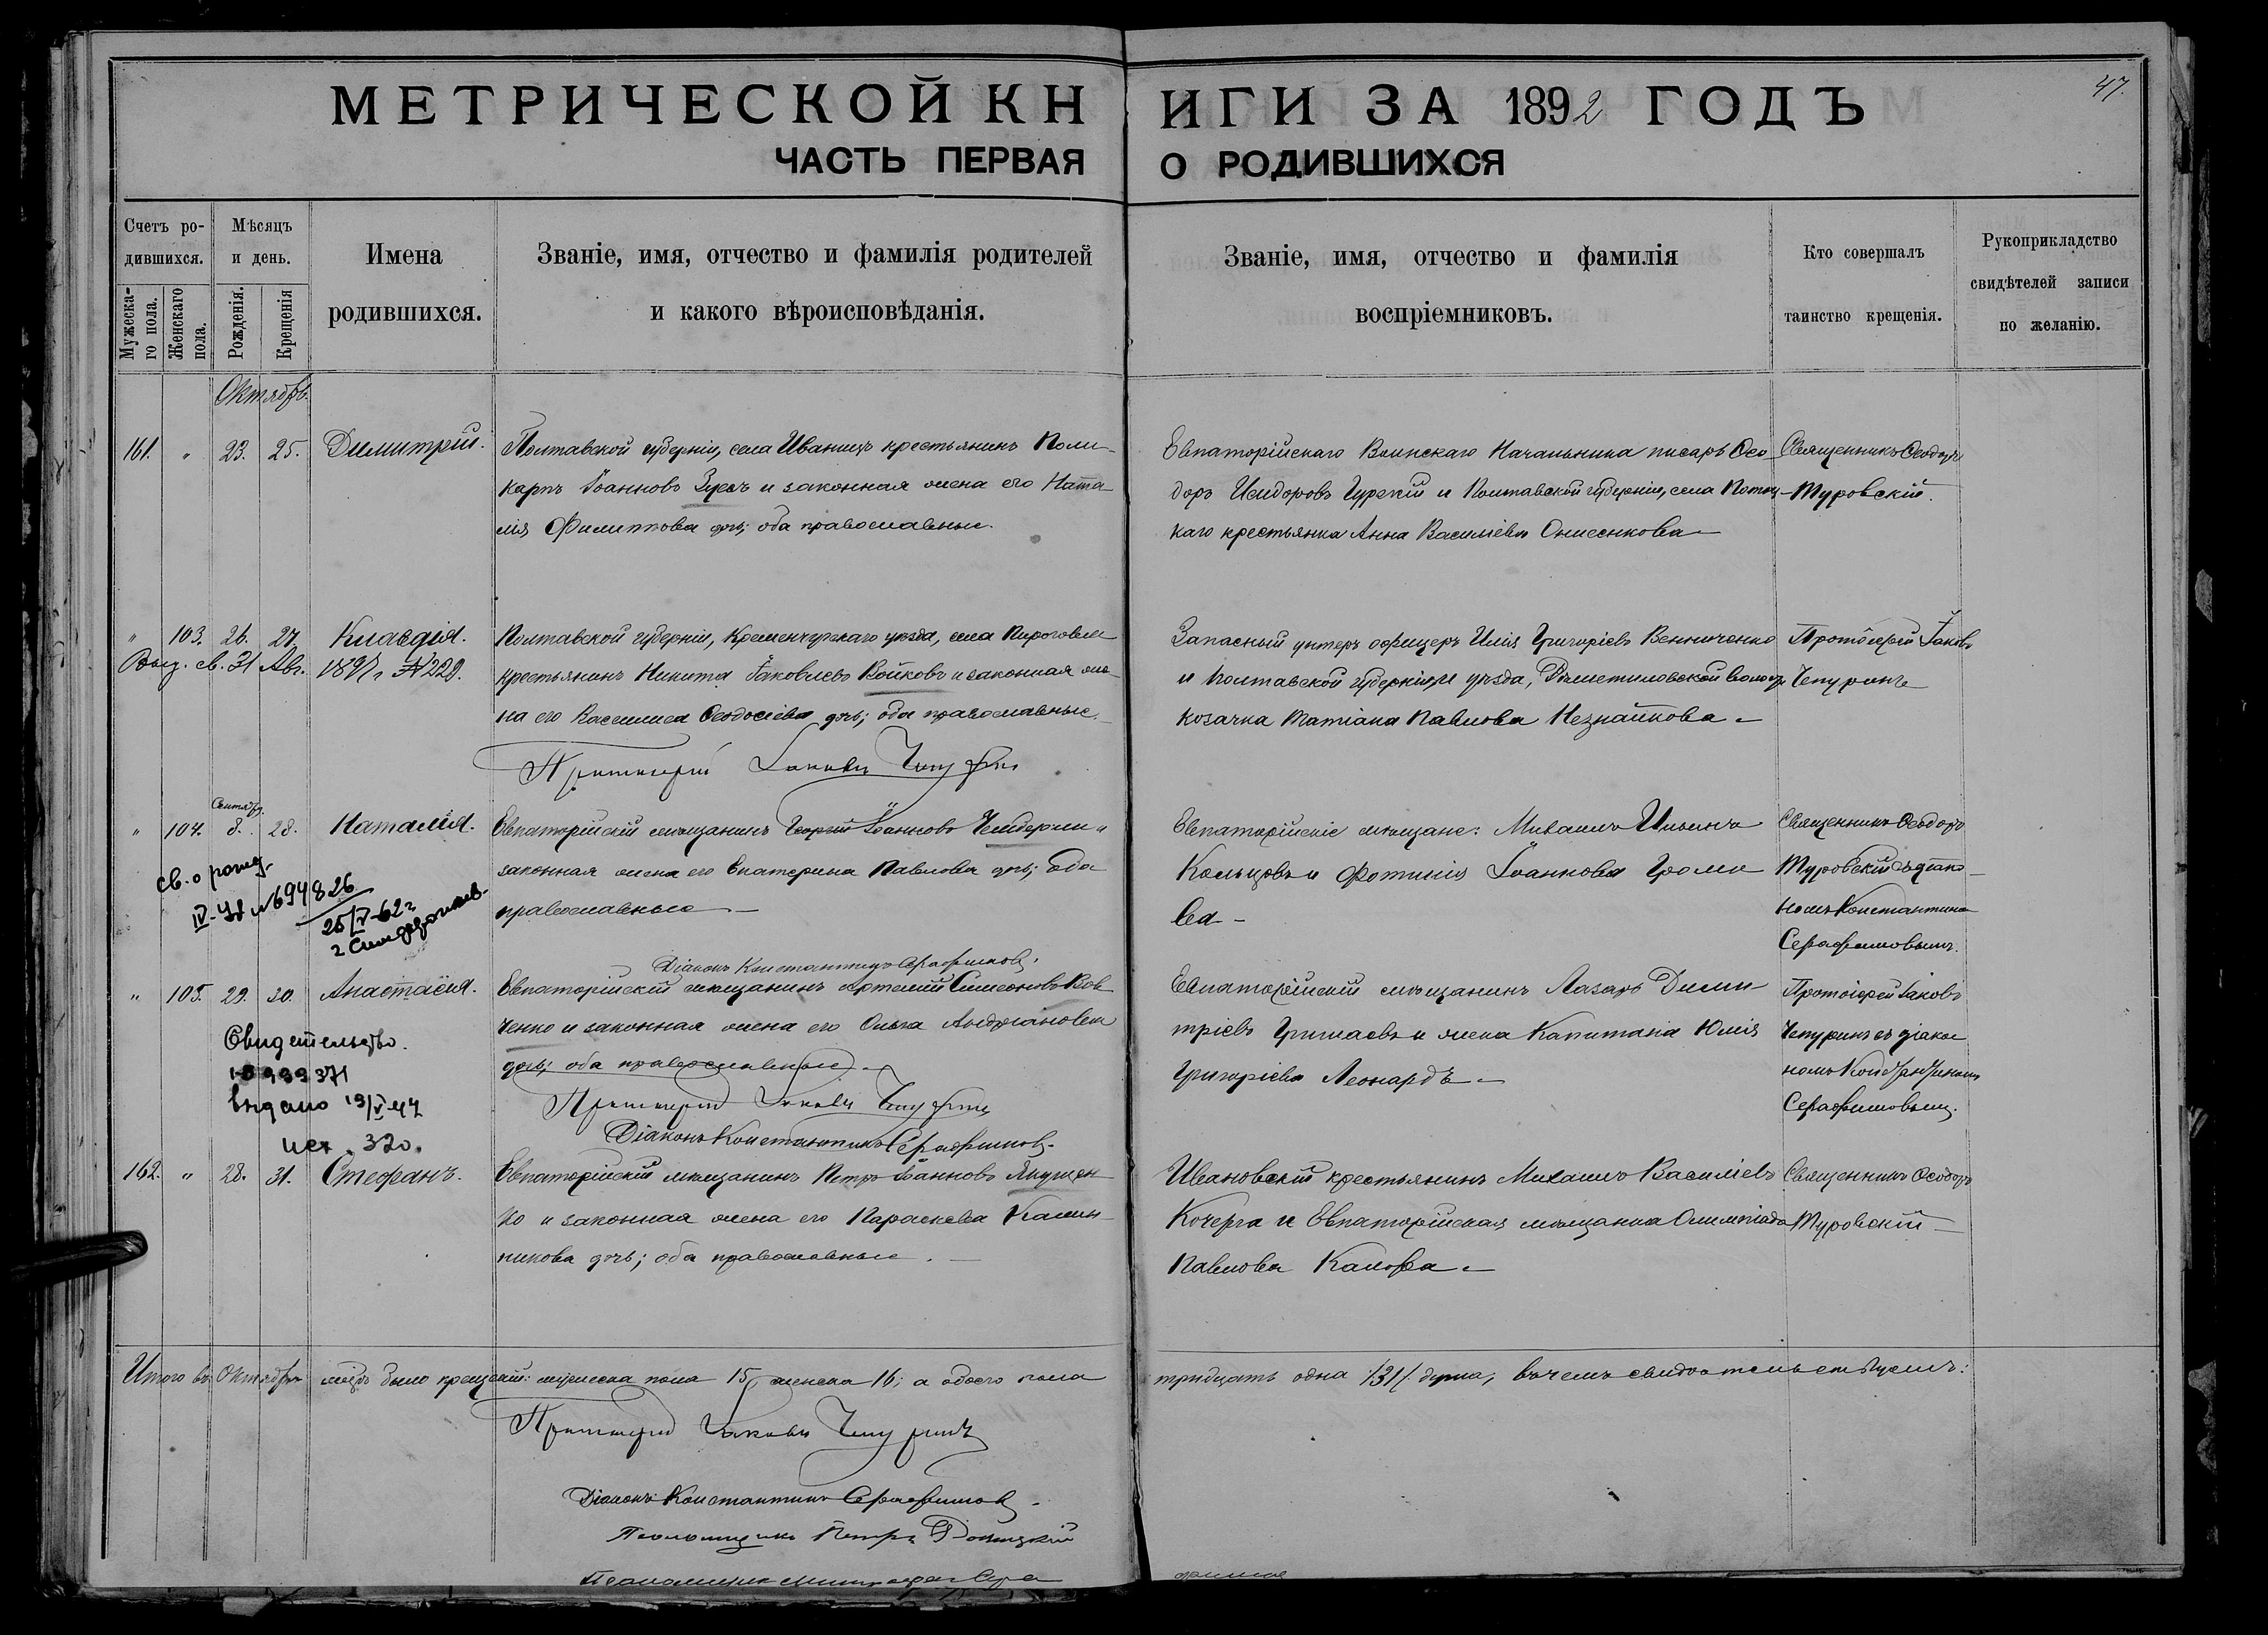 47.
МЕТРИЧЕСКОЙ КНИГИ ЗА 1892 ГОДЪ
ЧАСТЬ ПЕРВАЯ О РОДИВШИХСЯ
Счетъ ро-
дившихся.
Мужеска-
го пола.
Женскаго
пола.
Мѣсяцъ
и день.
Рожденія.
Крещенія
Имена
родившихся.
Званіе, имя, отчество и фамилія родителей
и какого вѣроисповѣданія.
Званіе, имя, отчество и фамилія
воспріемниковъ.
Кто совершалъ
таинство крещенія.
Рукоприкладство
свидѣтелей записи
по желанію.
Октябрь.
161. " 23. 25. Димитрій.
Полтавской губерніи, села Иваницъ крестьянинъ Поли-
карпъ Іоанновъ и законная жена его Ната-
лія Филиппова дочь; оба православные.
Евпаторійскаго Воинскаго Начальника писарь Ѳео
доръ Исидоровъ Гурскій и Полтавской губерніи, села Потоц-
каго крестьянка Анна Василіева Онисенкова
Священникъ Ѳеодоръ
Туровскій.
" 103. 26. 27. Клавдія.
Выд. св. 31 Авг. 1897 г. № 229.
Полтавской губерніи, Кременчугскаго уѣзда, села
крестьянинъ Никита Іаковлевъ Войковъ и законная же-
на его Василиса Ѳеодосіева дочь; оба православные.
Протоіерей Іаковъ Чепуринъ
Запасный унтеръ офицеръ Илія Григоріевъ Венниченко
и Полтавской губерніи и уѣзда, Рѣшетиловской волости
козачка Татіана Павлова Незнайкова
Протоіерей Іаковъ
Чепуринъ
Сентябр.
" 104. 8. 28. Наталія.
св. о рожд.
IV-ЧА № 694826
25/V-62 г.
Евпаторійскій мѣщанинъ Георгій Іоанновъ и
законная жена его Екатерина Павлова дочь; оба
православные
Діаконъ Константинъ Серафимовъ.
Евпаторійскіе мѣщане: Михаилъ Ильинъ
Кольцовъ и Фотинія Іоаннова Громо
ва
Священникъ Ѳеодоръ
Туровскій съ діако-
номъ Константиномъ
Серафимовымъ.
" 105. 29. 30. Анастасія.
Свидетельство.
выдано 19/V 44
исх. 320.
Евпаторійскій мѣщанинъ Артемій Симеоновъ Вов
ченко и законная жена его Ольга
дочь; оба православные
Протоіерей Іаковъ Чепуринъ
Діаконъ Константинъ Серафимовъ.
Евпаторійскій мѣщанинъ Лазарь Дими-
тріевъ и жена Капитана Юлія
Григоріева Леонардъ
Протоіерей Іаковъ
Чепуринъ съ діако
номъ Константиномъ
Серафимовымъ.
162. " 28. 31. Стефанъ.
Евпаторійскій мѣщанинъ Петръ Іоанновъ Якущен-
ко и законная жена его Параскева Калин-
никова дочь; оба православные.
Ивановскій крестьянинъ Михаилъ Василіевъ
Кочерга и Евпаторійская мѣщанка Олимпіада
Павлова
Священникъ Ѳеодоръ
Туровскій
Итого въ Октябрѣ мѣсяцѣ было крещеній: мужеска пола 15, женска 16; а обоего пола тридцать одна /31/ душа, въ чемъ свидѣтельствуемъ:
Протоіерей Іаковъ Чепуринъ
Діаконъ Константинъ Серафимовъ.
Псаломщикъ Петръ
Псаломщикъ